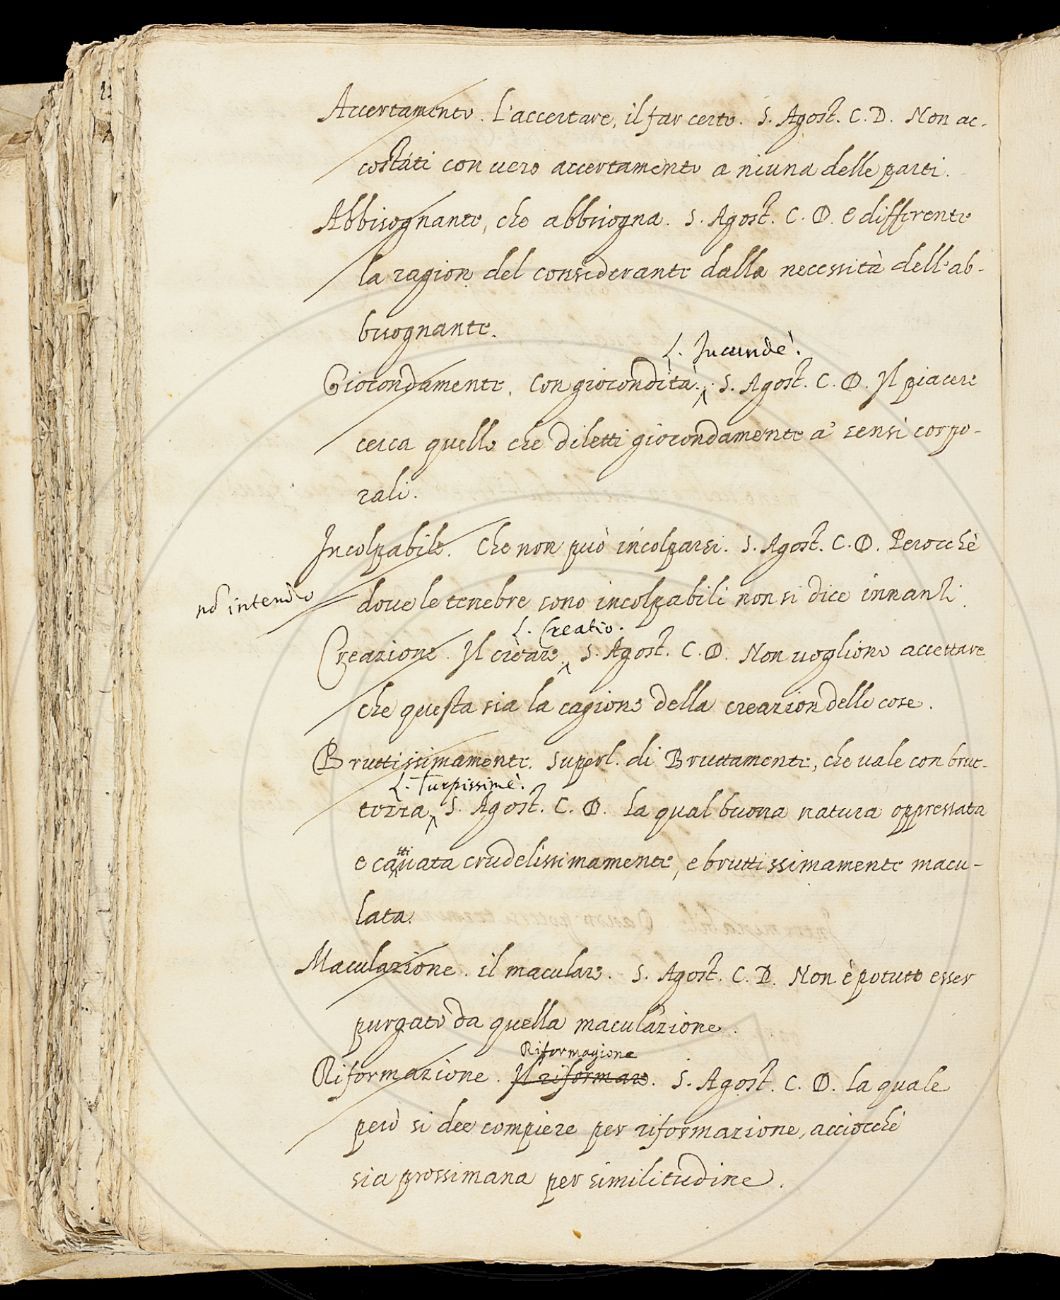 Accertamento. L'accertare, il far certo. S. Agost. C. D. Non ac-
costati con vero accertamento a niuna delle parti.
Abbisognante, che abbisogna. S. Agost. C. D. È differente
la ragion del considerante dalla necessità dell'ab-
bisognante.
L. Jucundè.
Giocondamente. Con giocondità. S. Agost. C. D. Il piacere
cerca quello che diletti giocondamente a' sensi corpo-
rali.
Incolpabile. Che non può incolparsi. S. Agost. C. D. Perocchè
nō intendo dove le tenebre sono incolpabili non si dice innanti.
L. Creatio.
Creazione. Il creare. S. Agost. C. D. Non vogliono accettare
che questa sia la cagione della creazion delle cose.
Bruttissimamente. Superl. di Bruttamente, che vale con brut-
L. Turpissimè.
tezza. S. Agost. C. D. La qual buona natura oppressata
tti
e cavata crudelissimamente, e bruttissimamente macu-
lata.
Maculazione. il maculare. S. Agost. C. D. Non è potuto esser
purgato da quella maculazione.
Riformagione
Riformazione. Il riformare. S. Agost. C. D. La quale
però si dee compiere per riformazione, acciocchè
sia prossimana per similitudine.